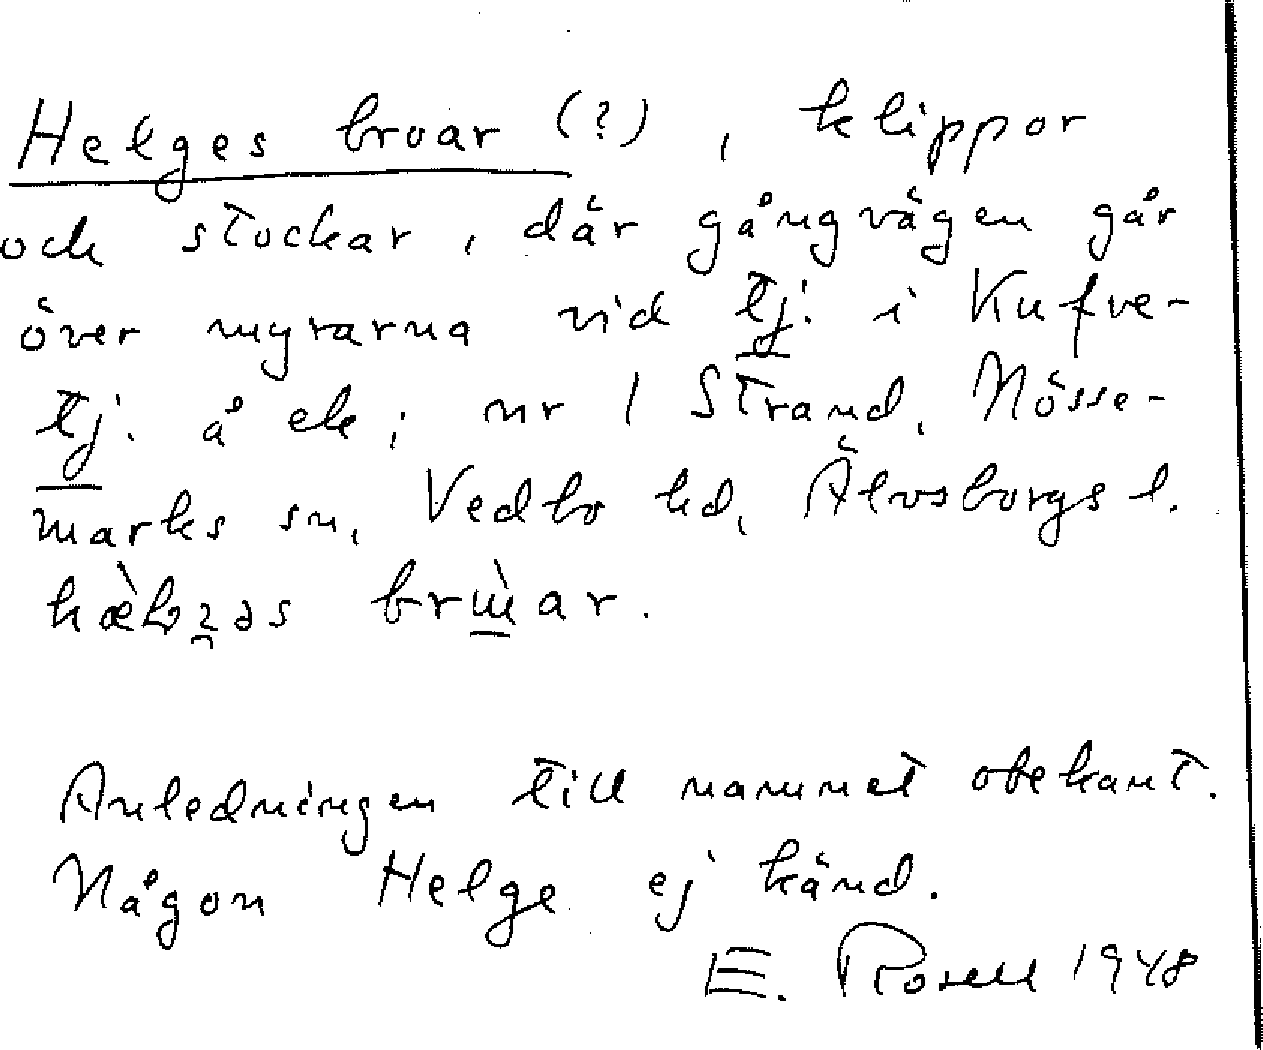 Helges broar (?), klippor
och stockar, där gångvägen går
över myrarna vid tj: i Kufve-
tj: å ek; nr 1 Strand, Nösse-
marks sn, Vedbo hd, Älvsborgs l.
Anledningen till namnet obekant.
Någon Helge ej känd.
E. Rosell 1948